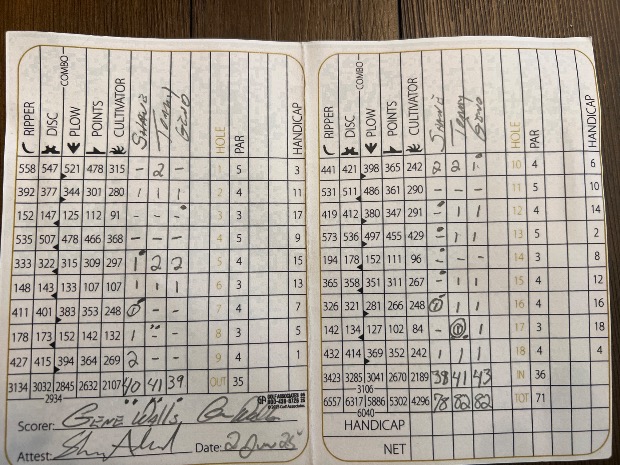 RIPPER DISC COMBO PLOW POINTS CULTIVATOR SHANE TERRY GENO HOLE PAR HANDICAP
558 547 521 478 315 - 2 - 1 5 3
392 377 344 301 280 1 1 1 2 4 11
152 147 125 112 91 - - - 3 3 17
535 507 478 466 368 - - - 4 5 9
333 322 315 309 297 1 2 2 5 4 15
148 143 133 107 107 1 1 1 6 3 13
411 401 383 353 248 1 - - 7 4 7
178 173 152 142 132 1 - - 8 3 5
427 415 394 364 269 2 - - 9 4 1
3134 3032 2845 2632 2107 40 41 39 OUT 35
2934
Scorer: GENE Walls
Attest: Date: 2 Jun 25
RIPPER DISC COMBO PLOW POINTS CULTIVATOR SHANE TERRY GENO HOLE PAR HANDICAP
441 421 398 365 242 2 2 1 10 4 6
531 511 486 361 290 - - - 11 5 10
419 412 380 347 291 - 1 1 12 4 14
573 536 497 455 429 - 1 1 13 5 2
194 178 152 111 96 - - - 14 3 8
365 358 351 311 267 - 1 1 15 4 12
326 321 281 266 248 1 1 1 16 4 16
142 134 127 102 84 - 1 1 17 3 18
432 414 369 352 242 1 1 1 18 4 4
3423 3285 3041 2670 2189 38 41 43 IN 36
3106
6557 6317 5886 5302 4296 78 82 82 TOT 71
6040
HANDICAP
NET